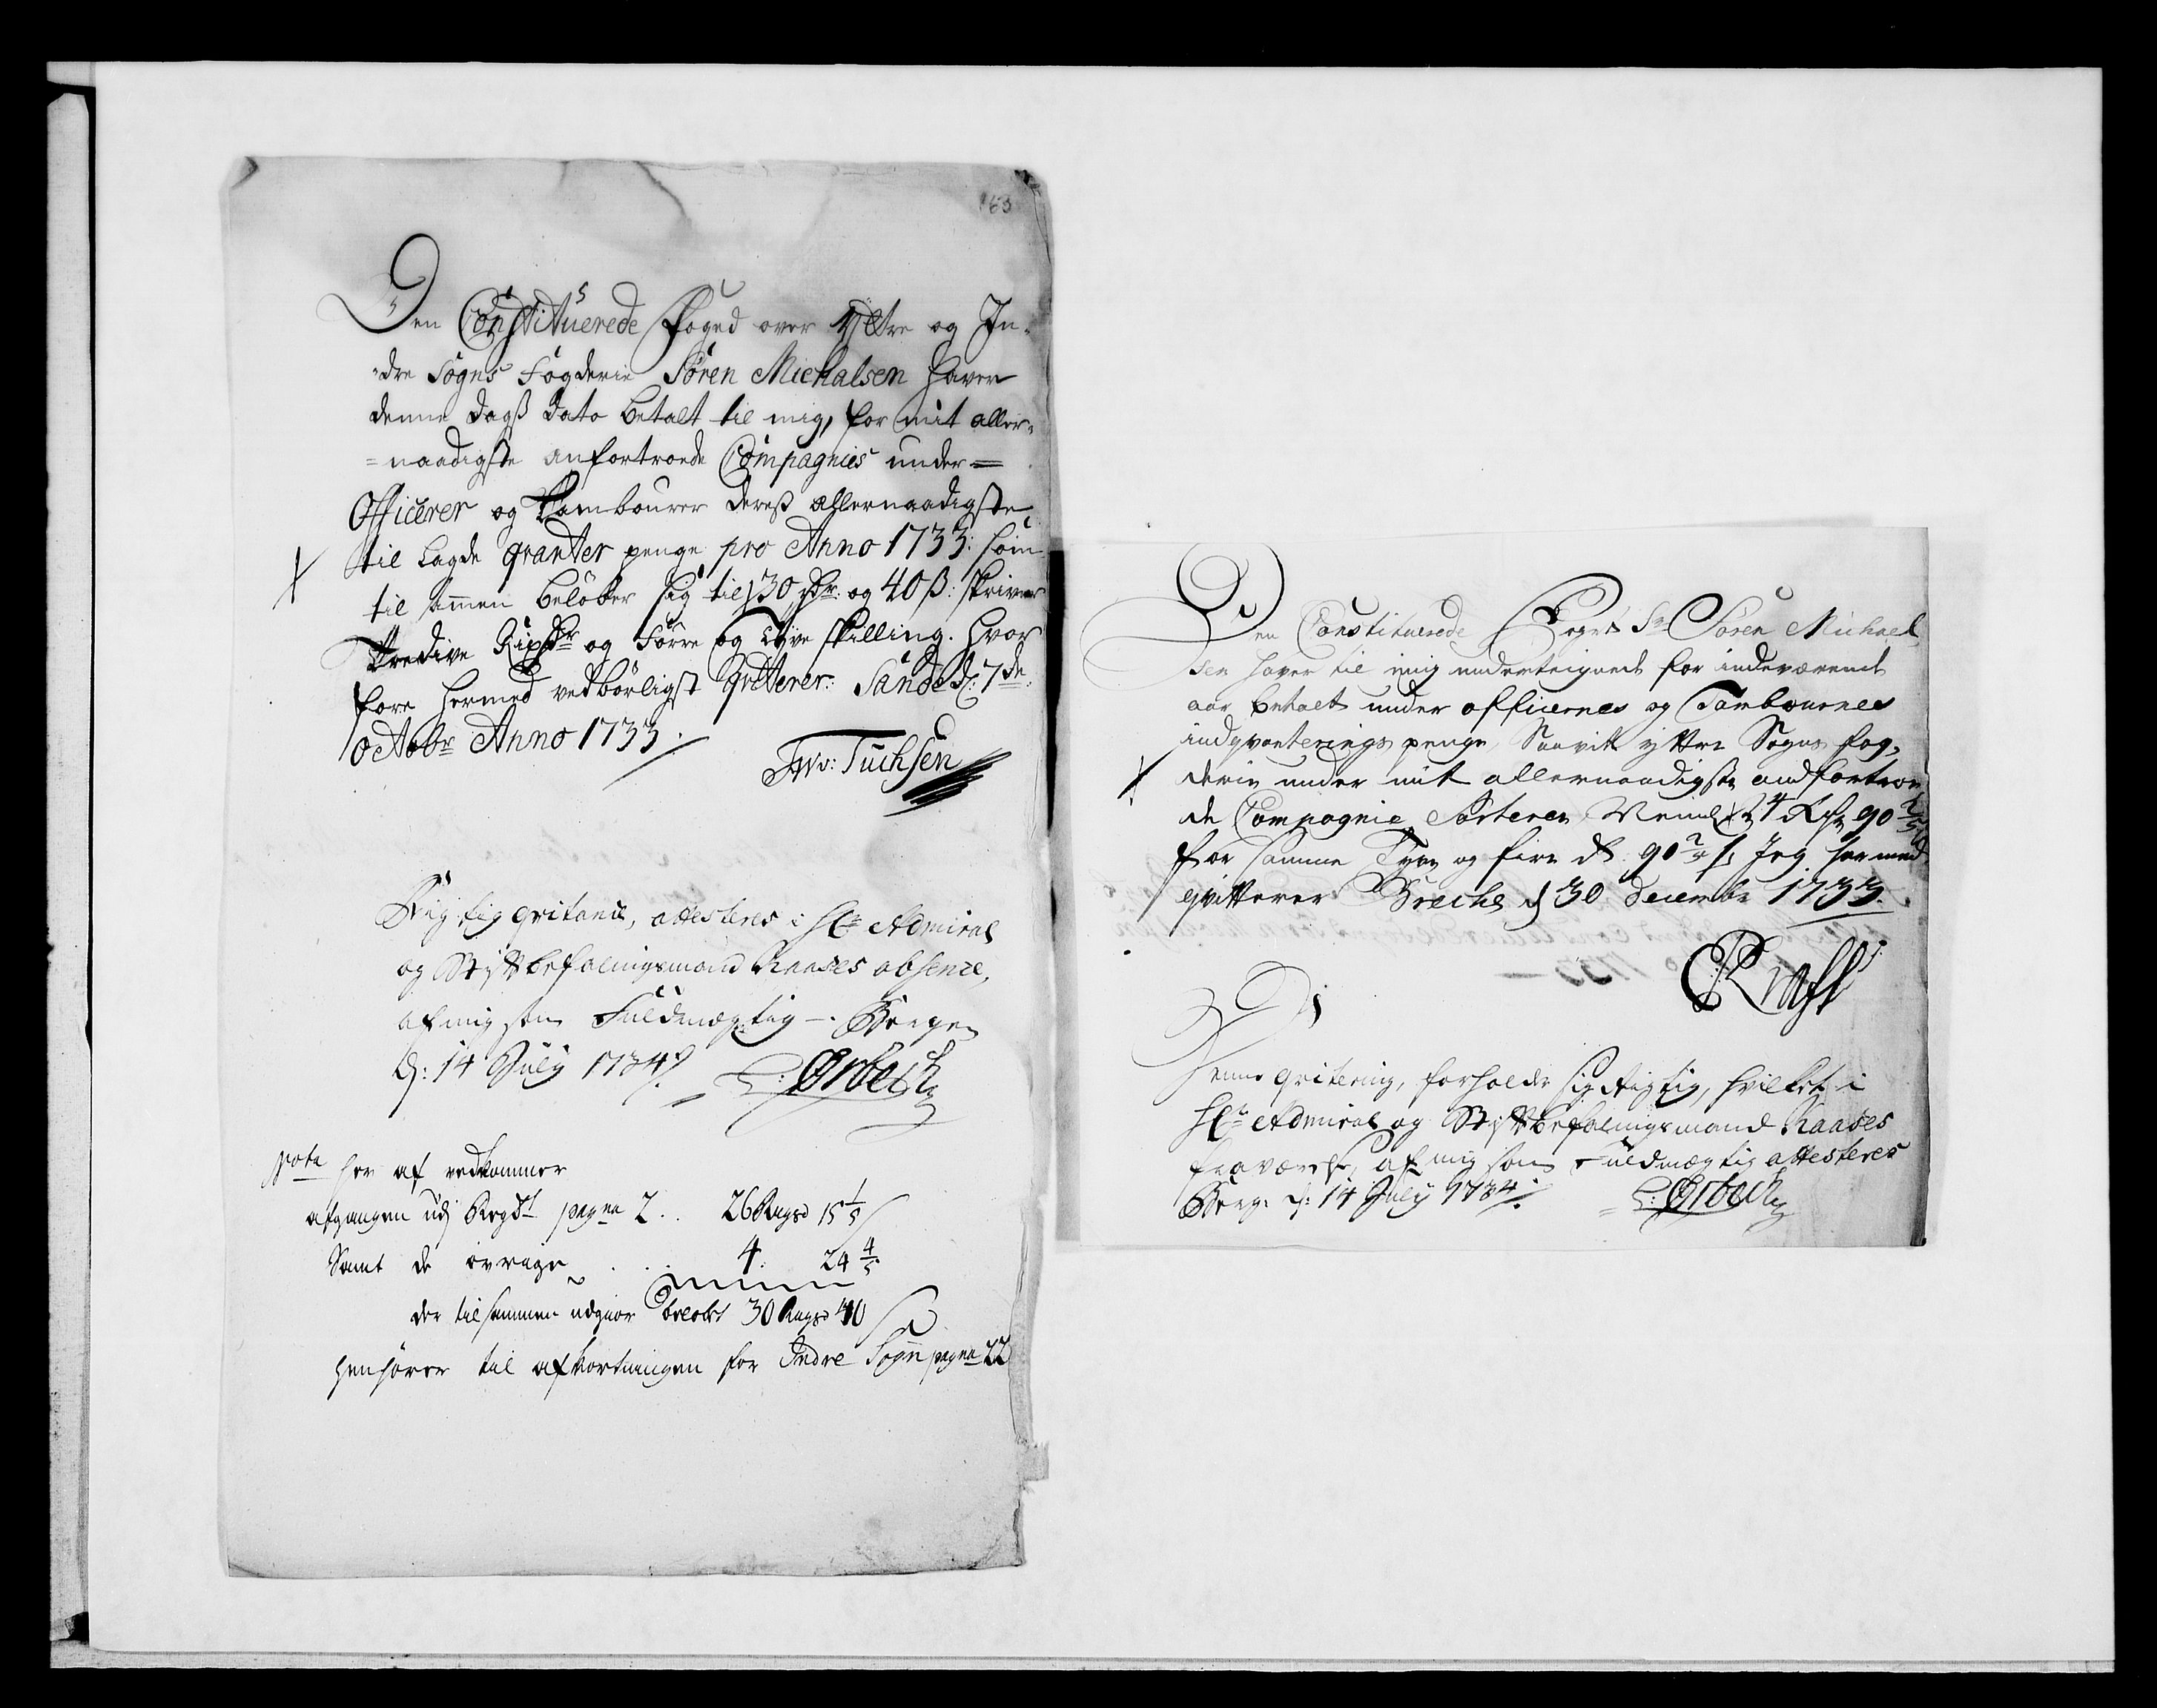 163
Den Constituerede Foged over Ÿttre og In-
-dre Sogns Fogderie Sören Michalsen haver
denne dags dato betalt til mig, for mit aller-
=naadigste anfortroede Compagnies under=
Officerer og Tambourer deres allernaadigste
til lagde qvarter penge pro Anno 1733: som
til sammen belöber sig til 30 Rdr: og 40 ß: skriver
Tredive Rixdr og Förre og Tyve skilling. hvor
fore hermed vedbörligst qvitterer: Sande d: 7de
octobr Anno 1733.
Tuchsen
Rigtig qvitance, attesteres i Hr Admiral
og Stiftbefalingsmand Kaases absence,
af mig som Fuldmægtig — Bergen
d: 14 July 1734
Örbech
Nota her af vedkommer
afgangen udj Regst pagna 2 . . 26 Rixdr 15 1/5
Samt de övrige . . . 4: 24 4/5
der tilsammen udgiör belöbet 30 Rixdr 40
henhörer til afkortningen for Indre Sogn pagna 22
Den Constituerede Foget Sr Sören Michael
sen haver til mig underteignede for indeværende
aar betalt under officernes og Tambournes
indqvarterings penge, Saavit yttre Sogns fog-
derie under mit allernaadigste anfortroe
de Compagnie Sorterer 24 Rdr 90 2/5
for samme Tyve og fire dr 90 2/5 s: Jeg hermed
qvitterer d 30 Decembr 1733.
Kraft
Denne qvitering, forholder sig Rigtig, hvilket i
Hr Admiral og Stiftbefalingsmand Kaases
fraværelse, af mig som Fuldmægtig attesteres
Berg: d: 14 July 1734
Örbech